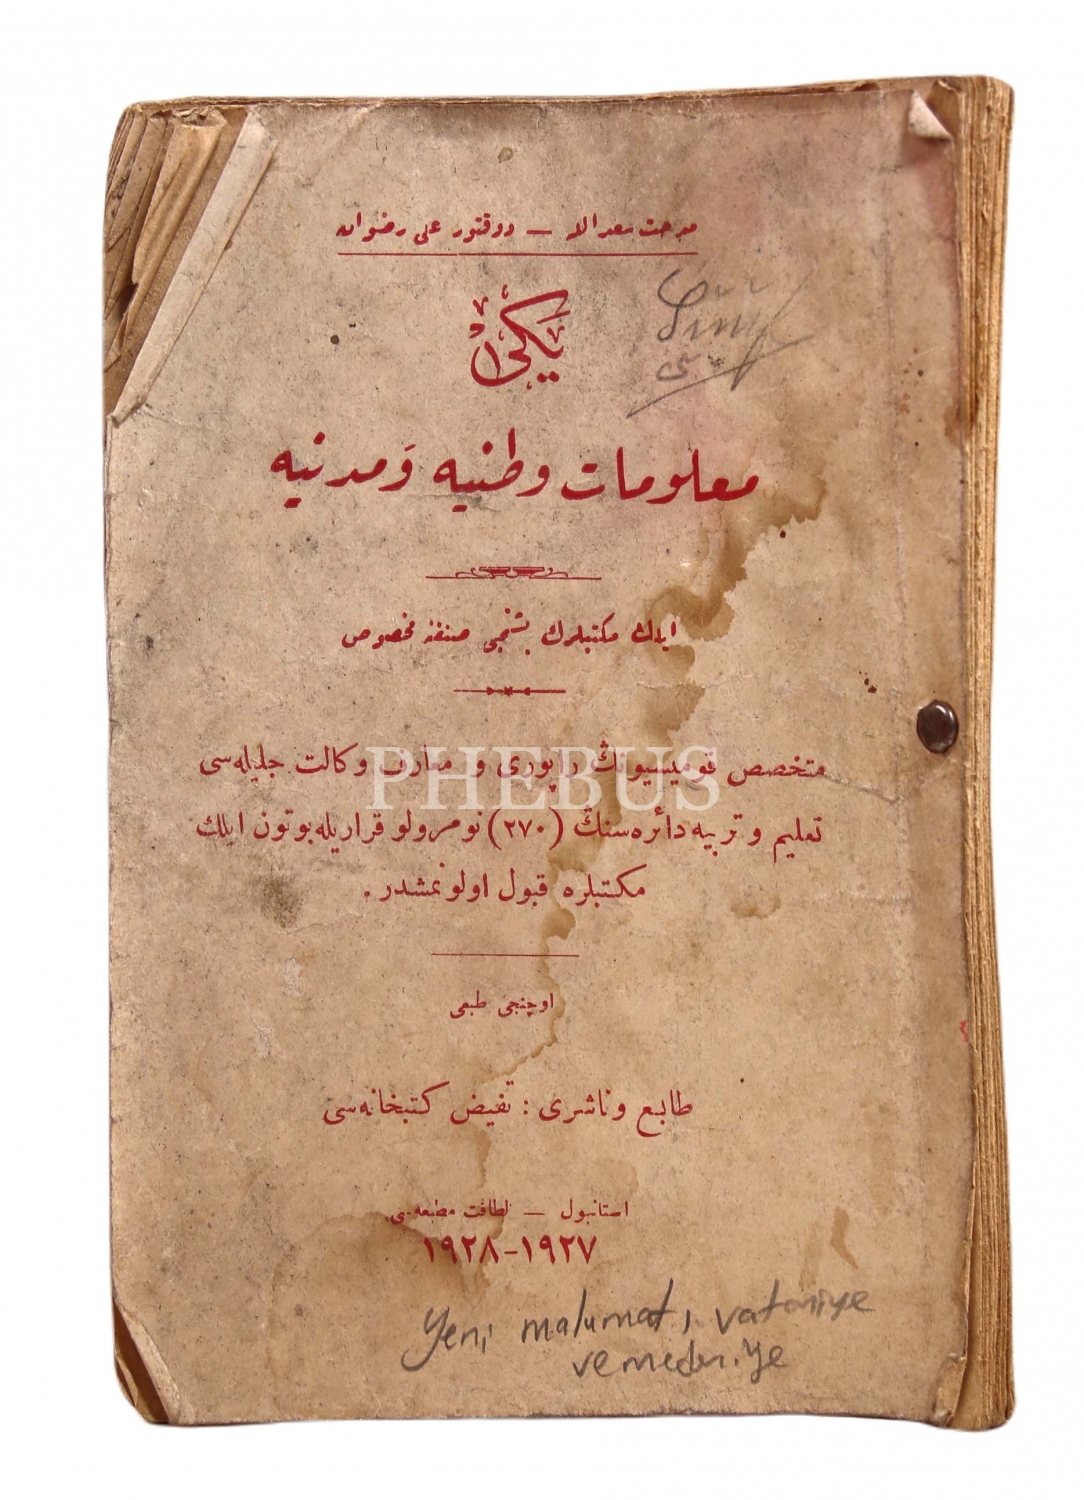 مدحت سعد الله — دوقتور علی رضوان
یکی
معلومات وطنیه و مدنیه
ایلك مكتبلرك بشنجی صنفنه مخصوص
متخصص قومیسیونڭ راپوری و معارف وکالت جلیله‌سی
تعلیم و تربیه دائره‌سنڭ (۲۷۰) نومرولو قراریله بوتون ایلك
مکتبلره قبول اولونمشدر.
PHEBUS
اوچنجی طبعی
طابع و ناشری : تفیض کتبخانه‌سی
استانبول — لطافت مطبعه‌سی
۱۹۲۷-۱۹۲۸
Yeni malumatı vataniye
ve medeniye